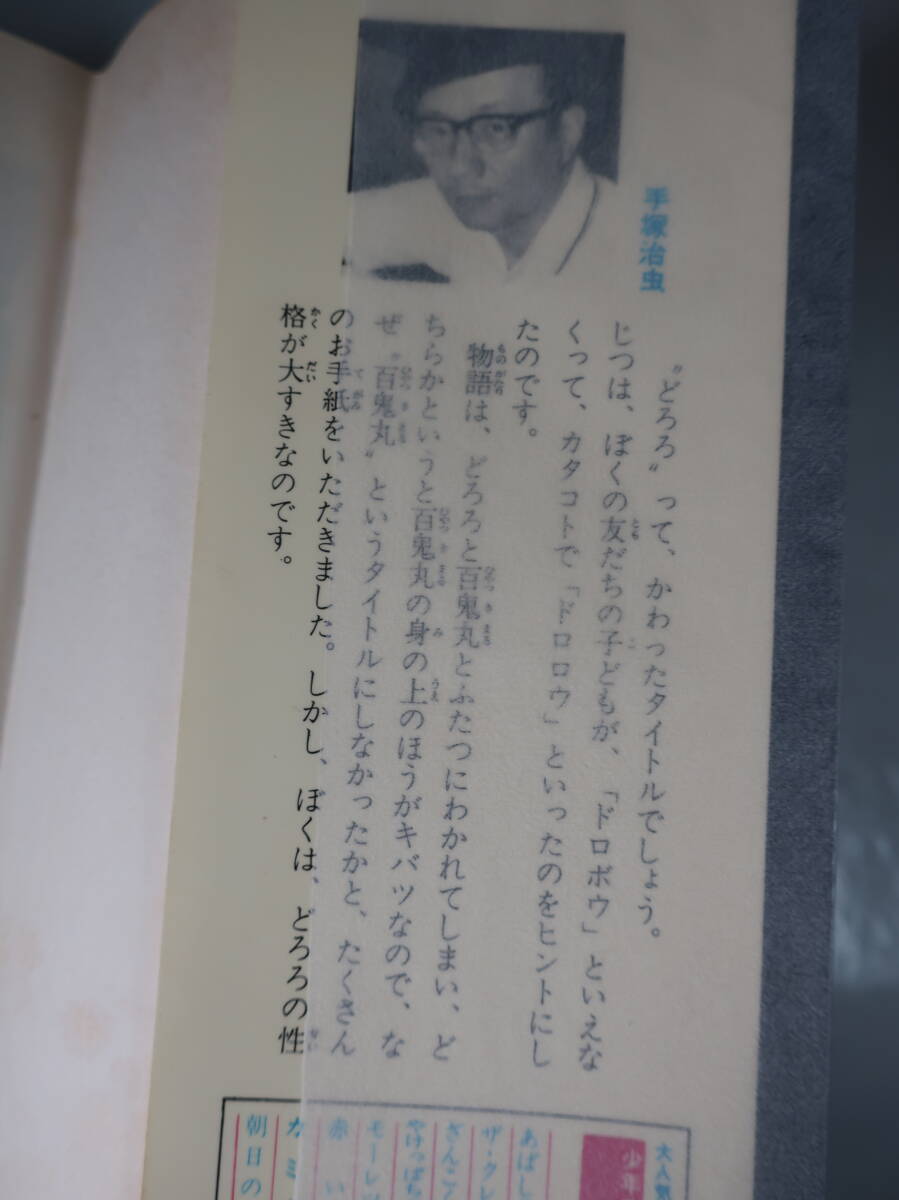 手塚治虫
〝どろろ〟って、かわったタイトルでしょう。
じつは、ぼくの友だちの子どもが、「ドロボウ」といえな
くって、カタコトで「ドロロウ」といったのをヒントにし
たのです。
物語は、どろろと百鬼丸とふたつにわかれてしまい、ど
ちらかというと百鬼丸の身の上のほうがキバツなので、な
ぜ〝百鬼丸〟というタイトルにしなかったかと、たくさん
のお手紙をいただきました。しかし、ぼくは、どろろの性
格が大すきなのです。
大人気
少年
あばし
ザ・クレ
ぎんこ
やけっぱち
モーレツ
赤い
カミ
朝日の